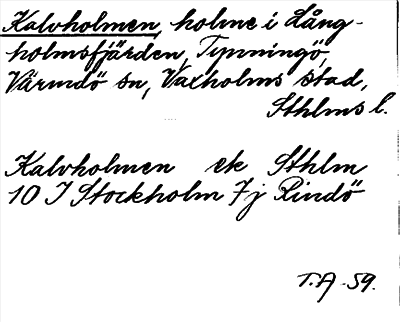 Kalvholmen, holme i Lång-
holmsfjärden, Tynningö,
Värmdö sn, Vaxholms stad,
Sthlms l.
Kalvholmen ek Sthlm
10 I Stockholm 7j Rindö
T.A -59.